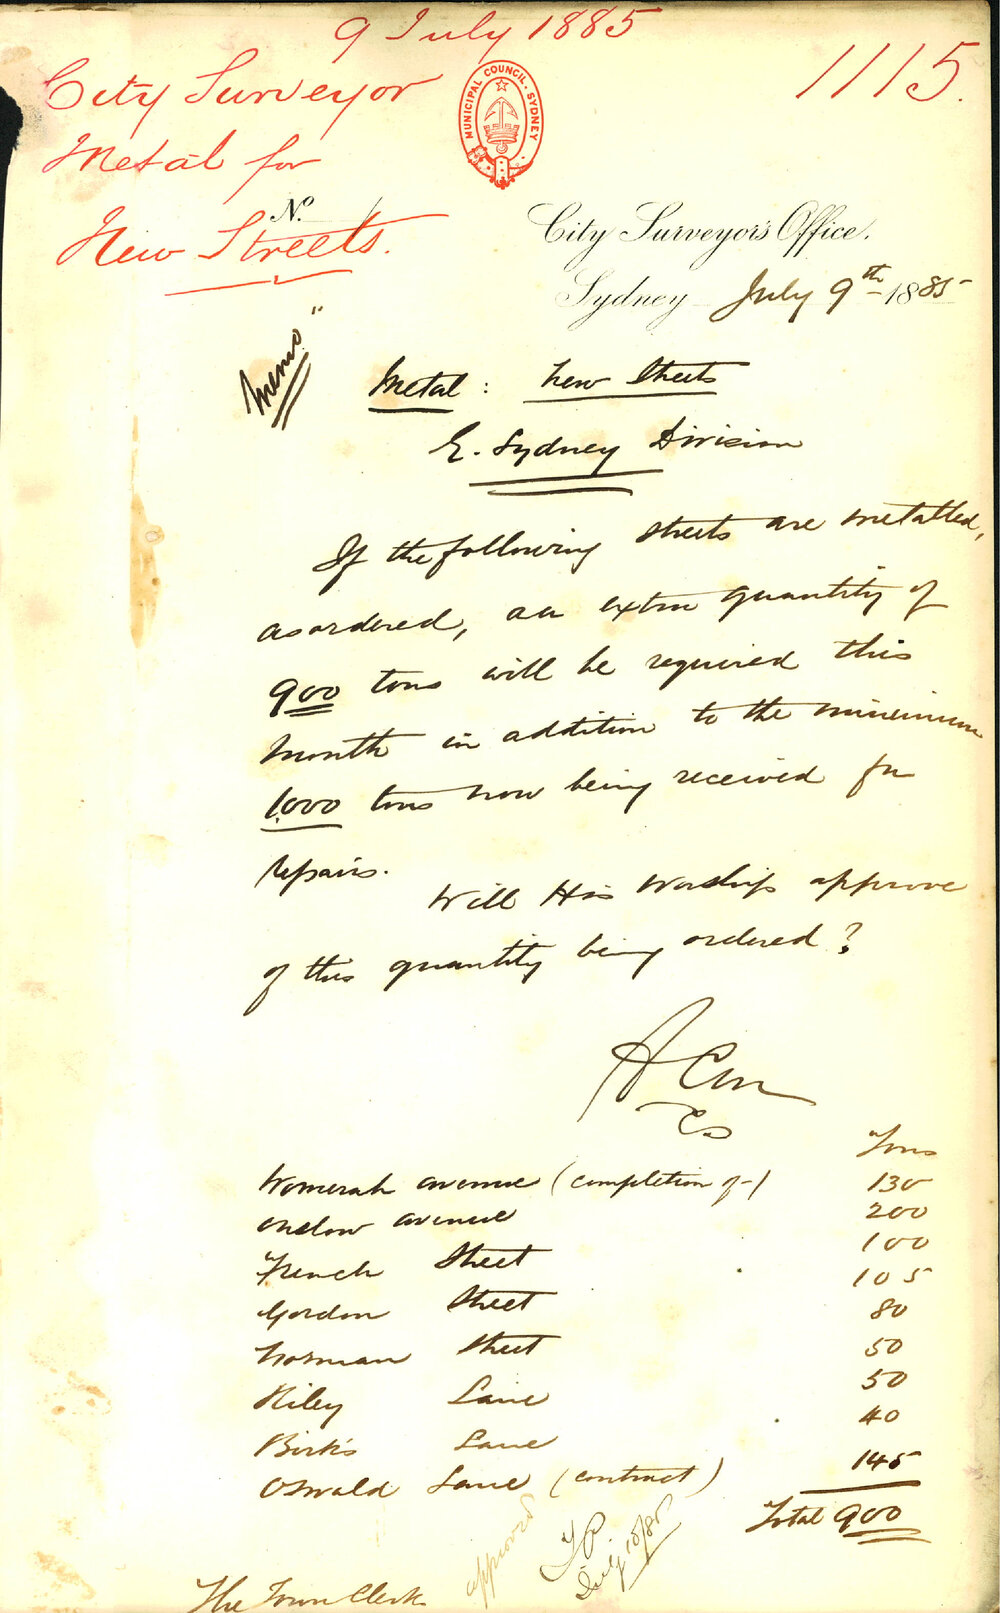 9 July 1885
1115.
City Surveyor
Metal for
New Streets.
MUNICIPAL COUNCIL. SYDNEY
No.
City Surveyor's Office.
Sydney July 9th 1885
"Memo"
Metal : New Streets
E. Sydney Division
If the following streets are metalled,
as ordered, an extra quantity of
900 tons will be required this
month in addition to the minimum
1,000 tons now being received for
repairs.
Will His Worship approve
of this quantity being ordered?
CS
Womerah avenue (completion of)
Onslow avenue
French Street
Gordon Street
Norman Street
Riley Lane
Birks Lane
Oswald Lane (contract)
Tons
130
200
100
105
80
50
50
40
145
Total 900
approved
July 10/85
The Town Clerk